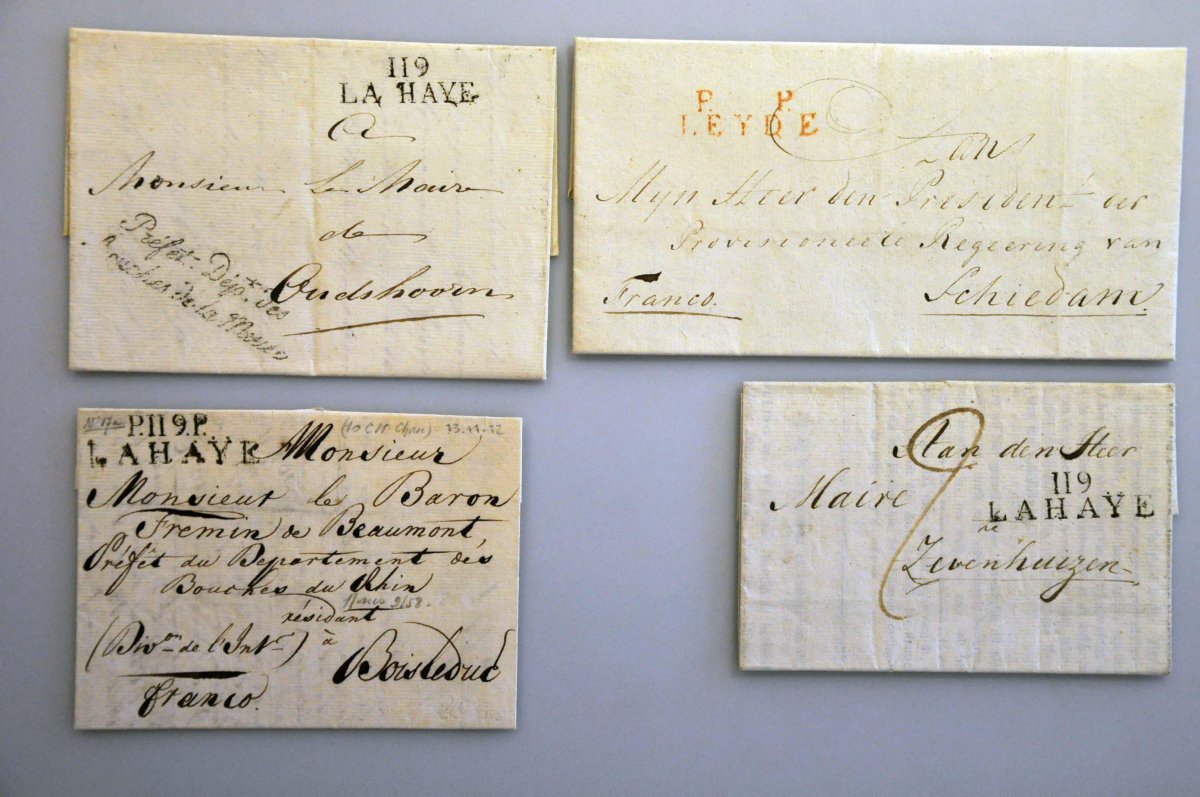 119
LA HAYE
A
Monsieur Le Maire
de
Oudshoorn
Préfet. Dépt. des
Bouches de la Meuse
P. P.
LEYDE
Aan
Myn Heer den President der
Provisioneele Regeering van
Franco. Schiedam.
P.119.P.
LAHAYE Monsieur
Monsieur le Baron
Fremin de Beaumont,
Préfét du Departement des
Bouches du Rhin
résidant
(Divon de l'Intr) à
Boisleduc
franco.
Aan den Heer
Maire
119
LAHAYE
te
Zevenhuizen